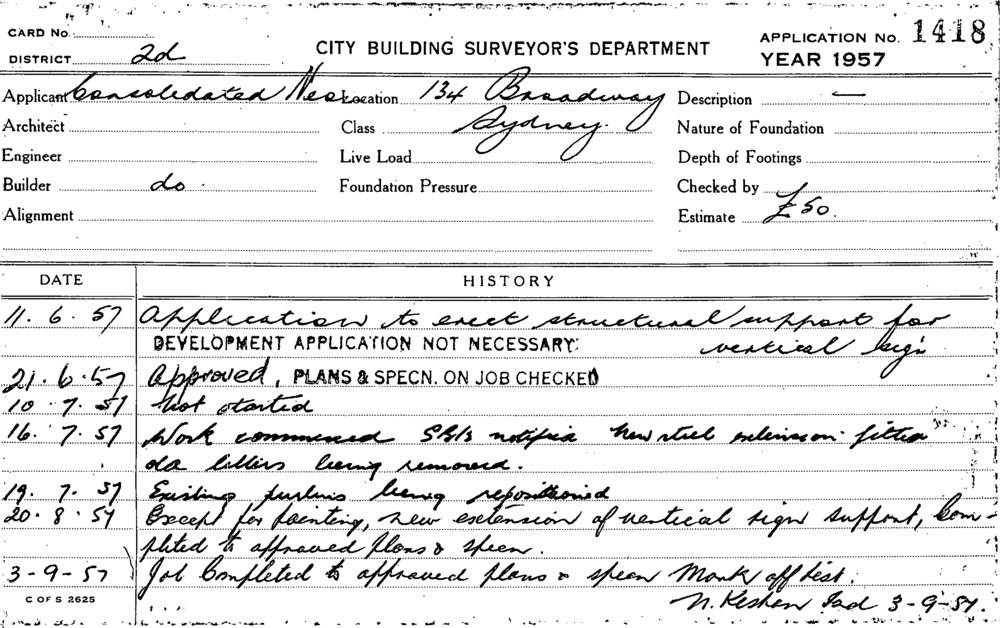 CARD No.
DISTRICT 2d
CITY BUILDING SURVEYOR'S DEPARTMENT
APPLICATION No. 1418
YEAR 1957
Applicant Consolidated Neon Location 134 Broadway Description —
Architect Class Sydney. Nature of Foundation
Engineer Live Load Depth of Footings
Builder do. Foundation Pressure Checked by
Alignment Estimate £50.
DATE HISTORY
11.6.57 Application to erect structural support for
DEVELOPMENT APPLICATION NOT NECESSARY: vertical sign
21.6.57 Approved, PLANS & SPECN. ON JOB CHECKED
10.7.57 Not started
16.7.57 Work commenced notified New steel extension fitted
letters being removed.
19.7.57 Existing purlins being repositioned
20.8.57 Except for painting, new extension of vertical sign support, Com-
pleted to approved plans & specn.
3-9-57 Job Completed to approved plans & specn Mark off list.
C OF S 2625
3-9-57.